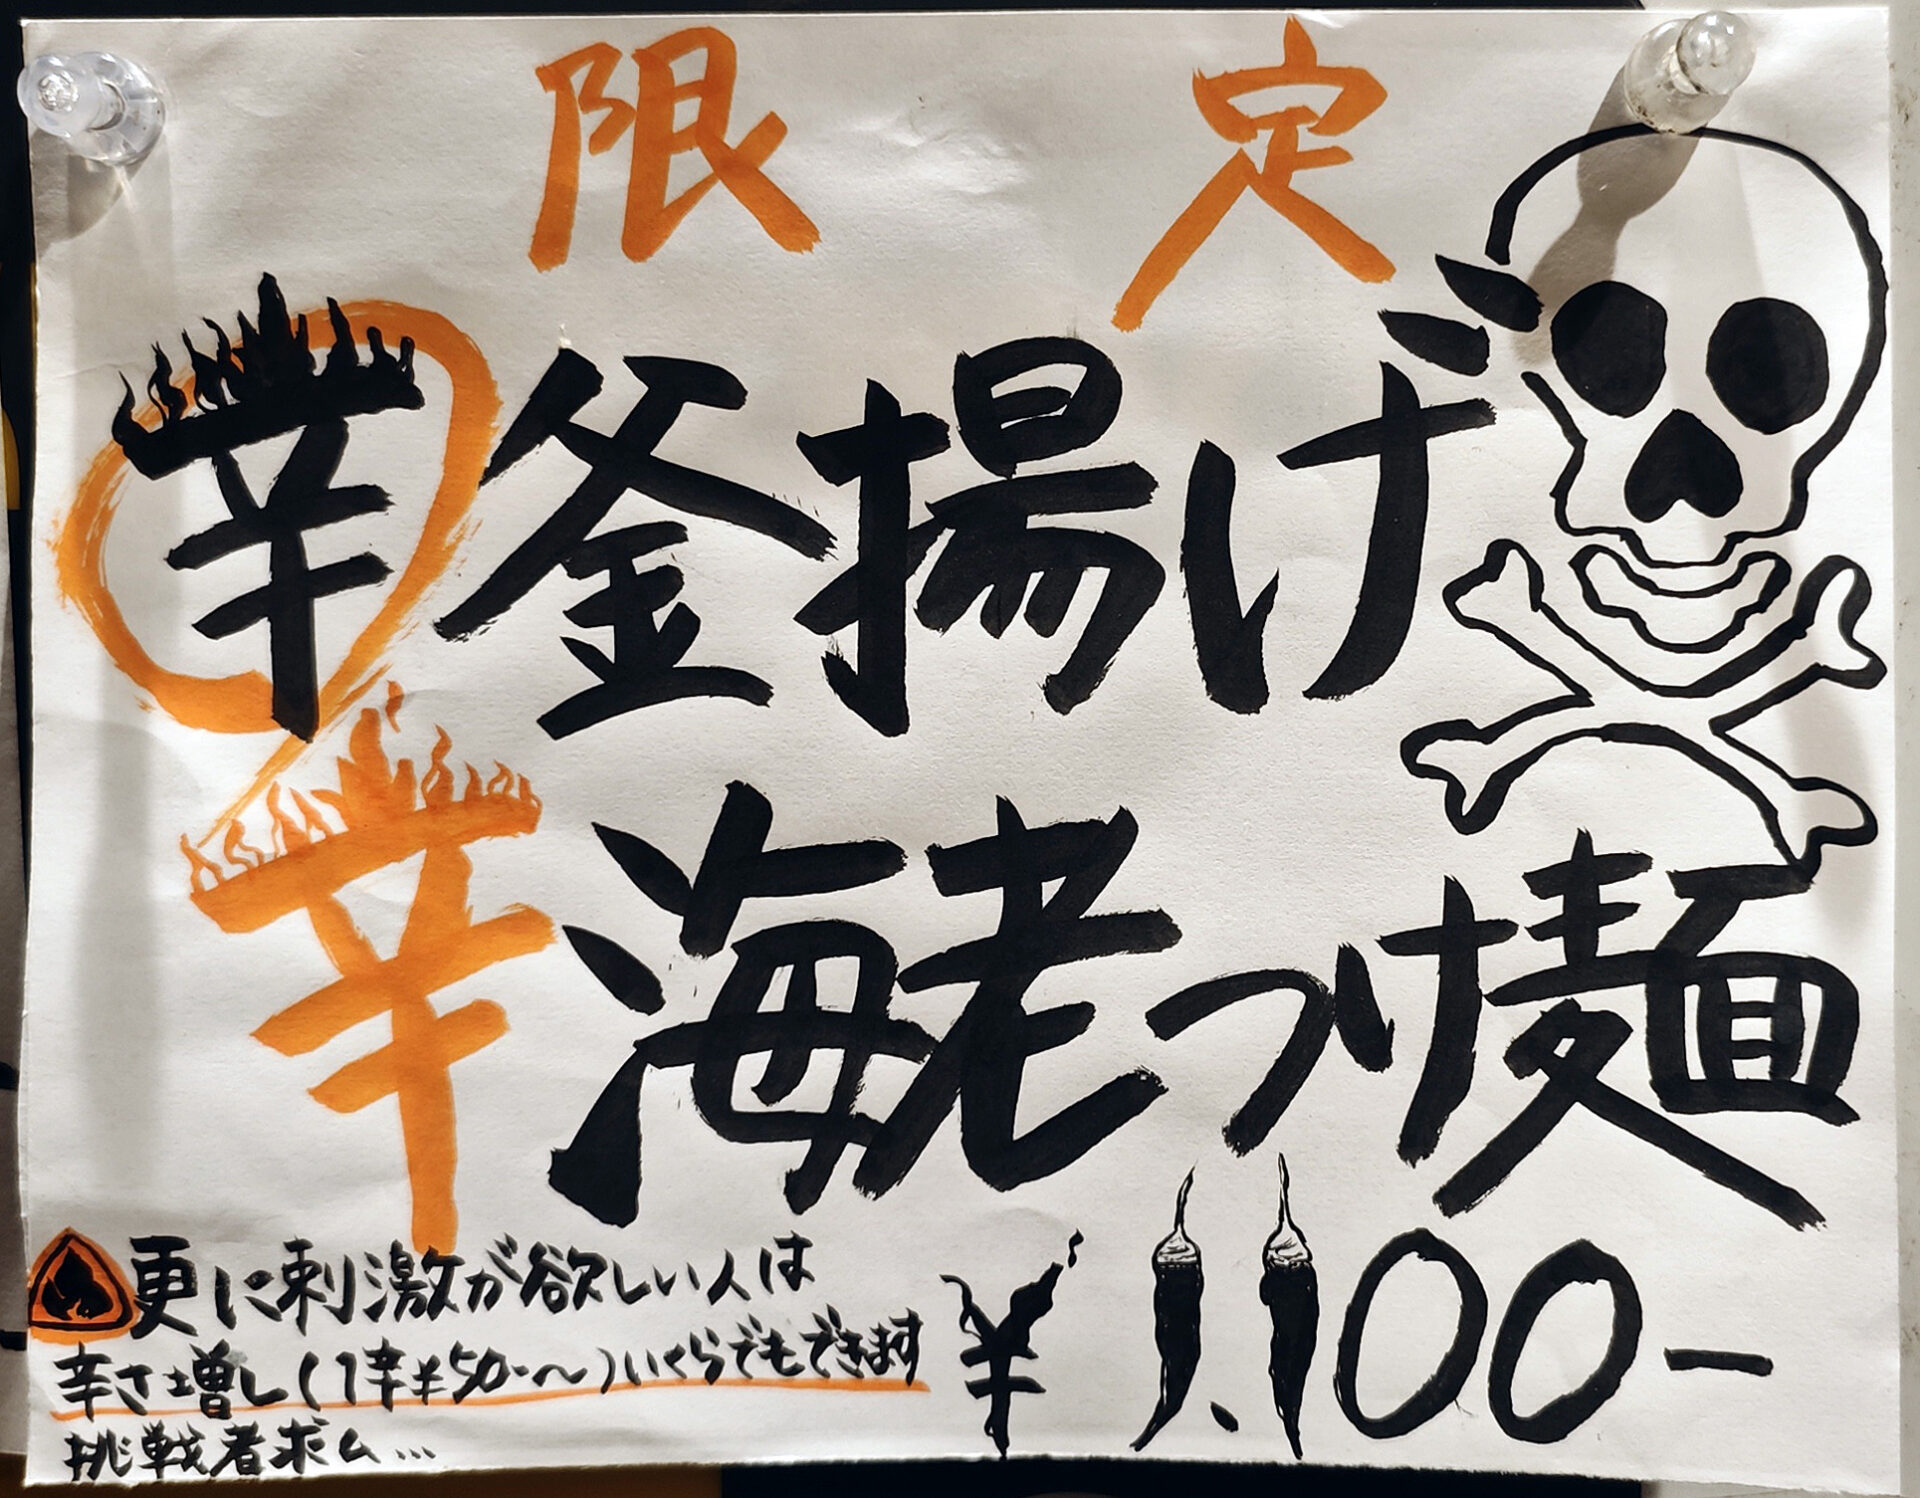 限定
辛釜揚げ
辛海老つけ麺
更に刺激が欲しい人は
辛さ増し(1辛¥50-〜)いくらでもできます
挑戦者求ム...
¥1,100-